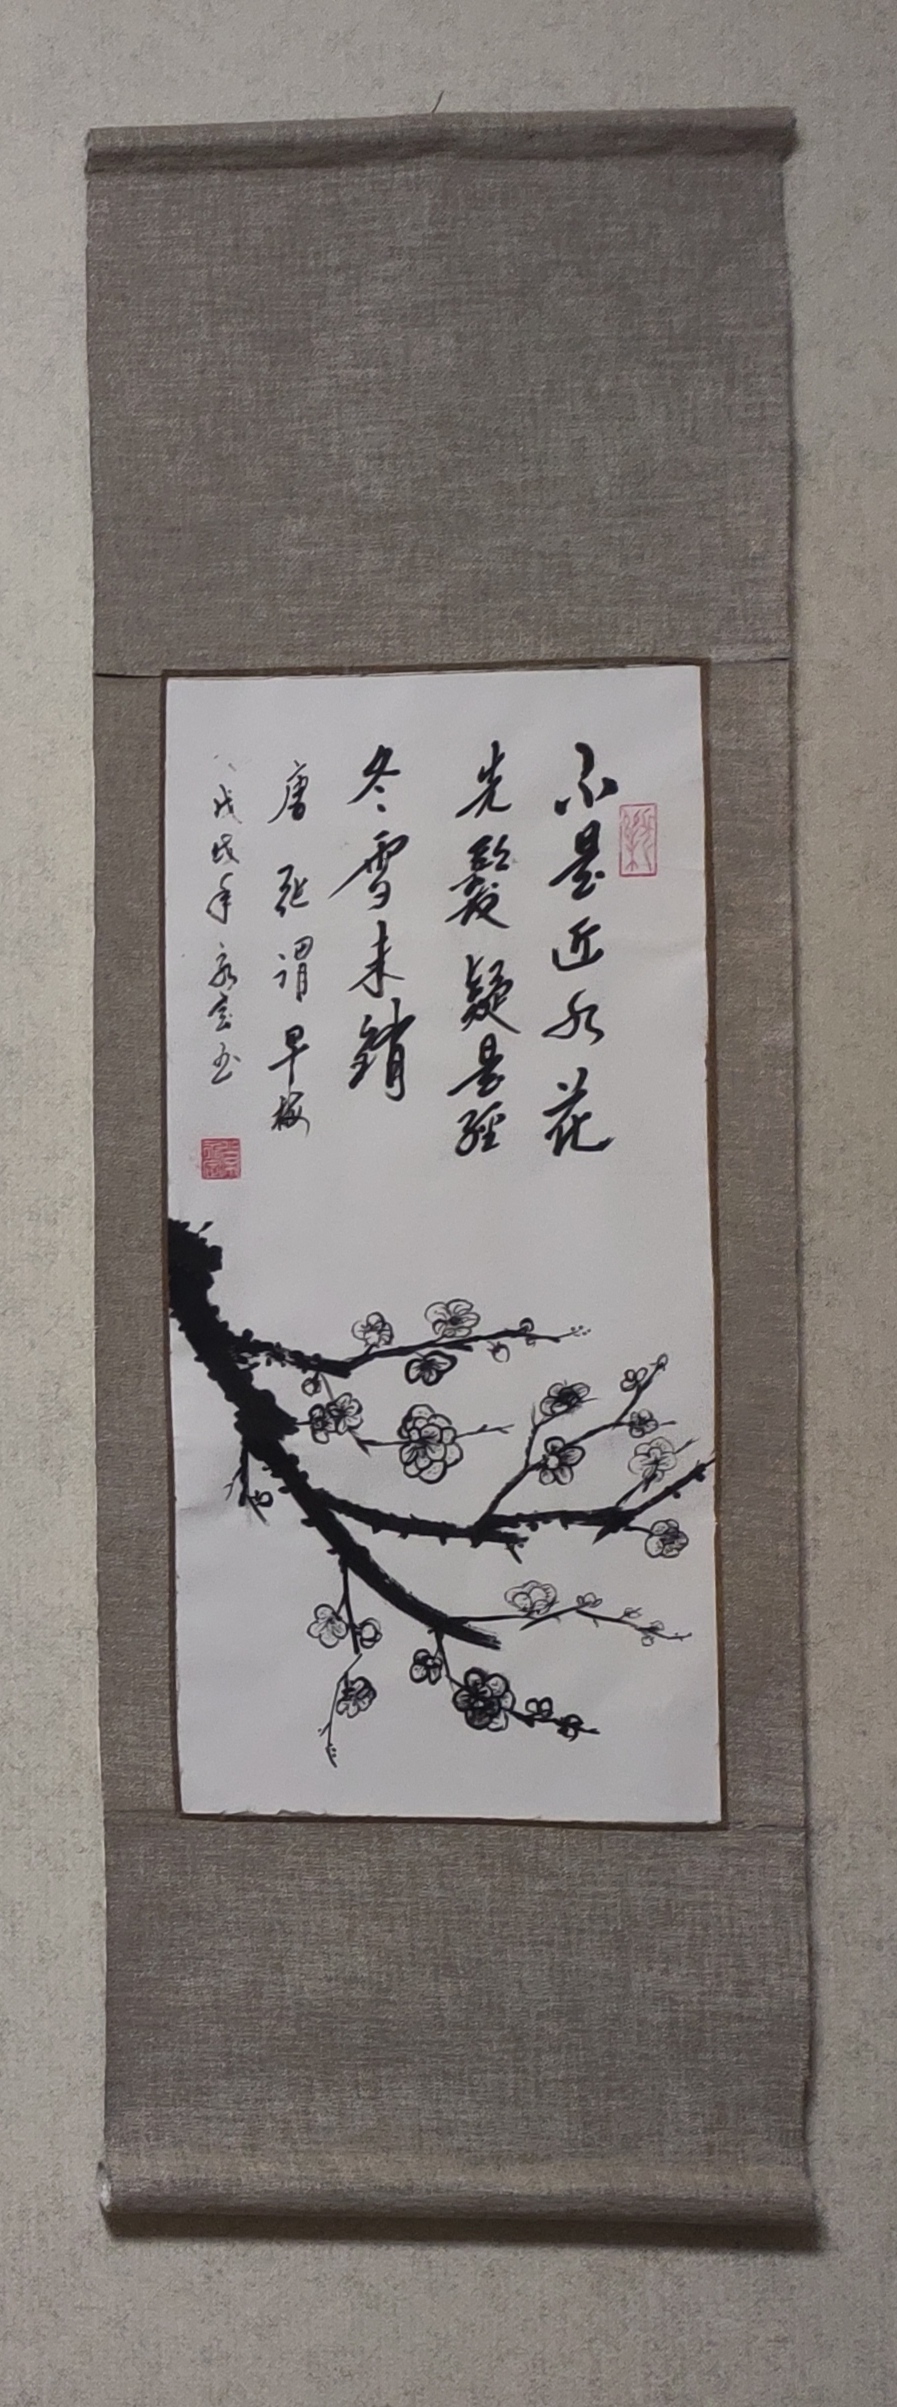 不是近水花
先發疑是經
冬雪未銷
唐 张谓 早梅
戊戌年